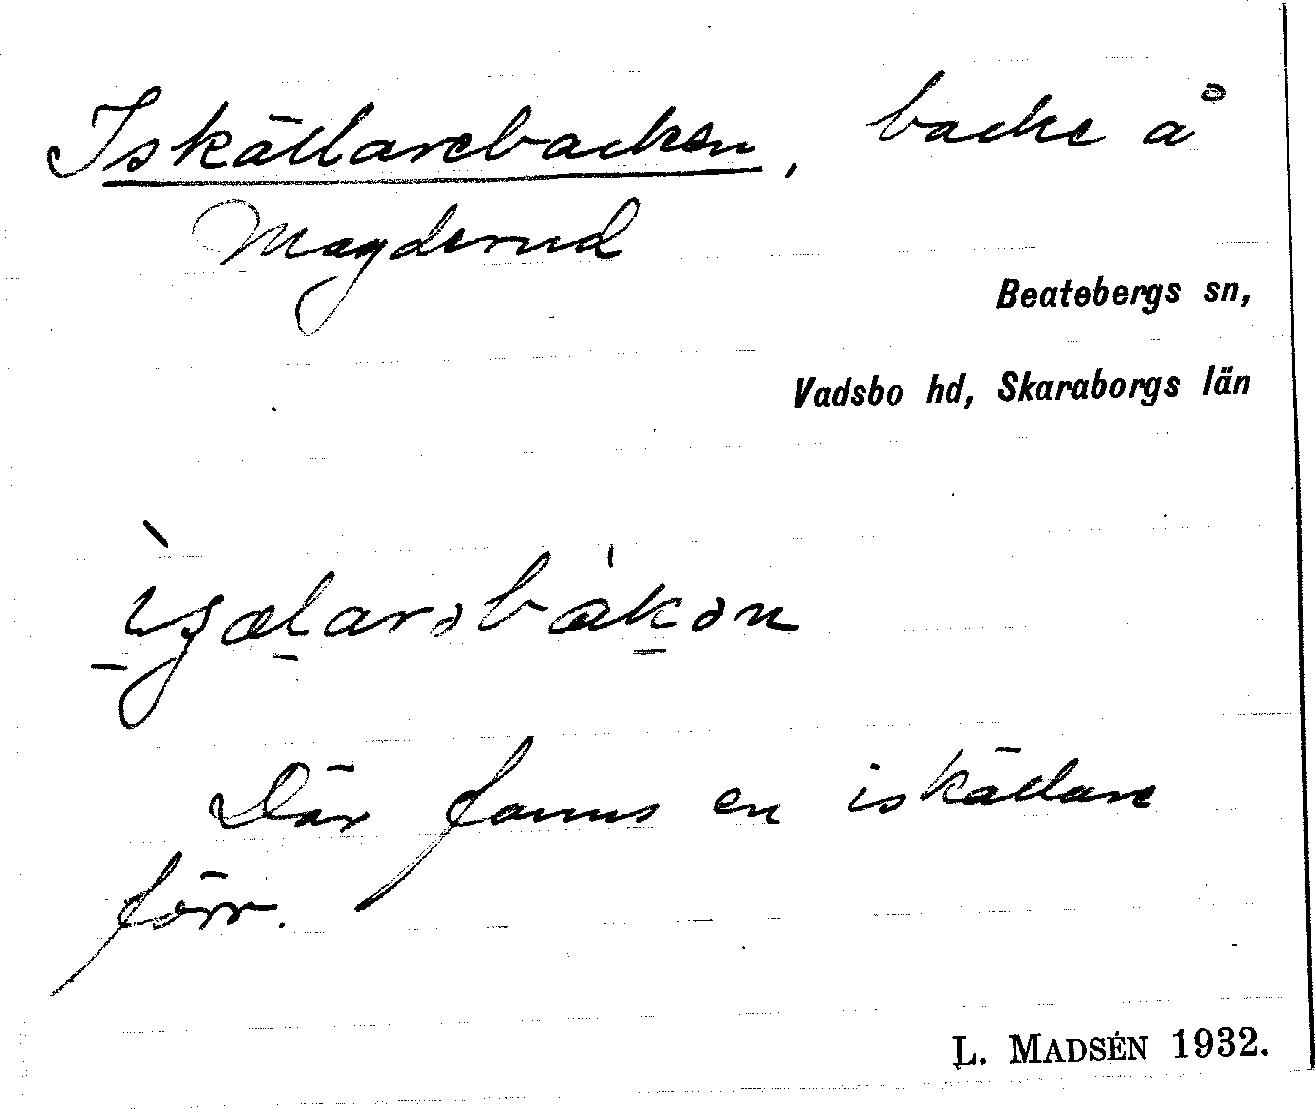 Iskällarebacken, backe å
Magderud
Beatebergs sn,
Vadsbo hd, Skaraborgs län
Där fanns en iskällare
förr.
L. MADSÉN 1932.